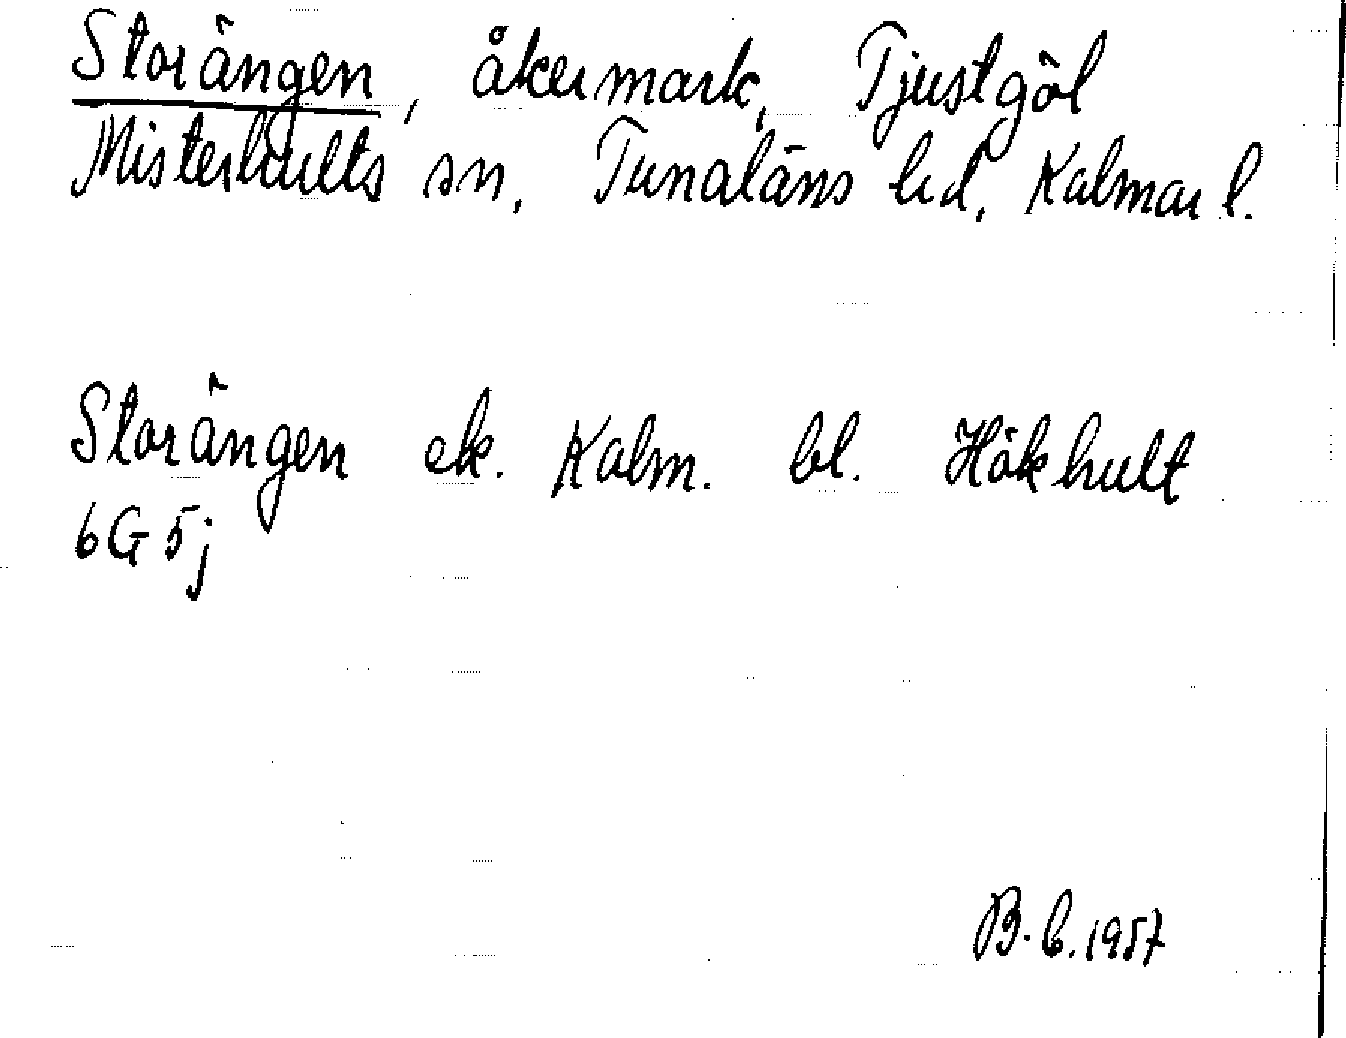 Storängen, åkermark, Tjustgöl
Misterhults sn, Tunaläns hd, Kalmar l.
Storängen ek. Kalm. bl. Hökhult
6G 5j
B. C. 1957